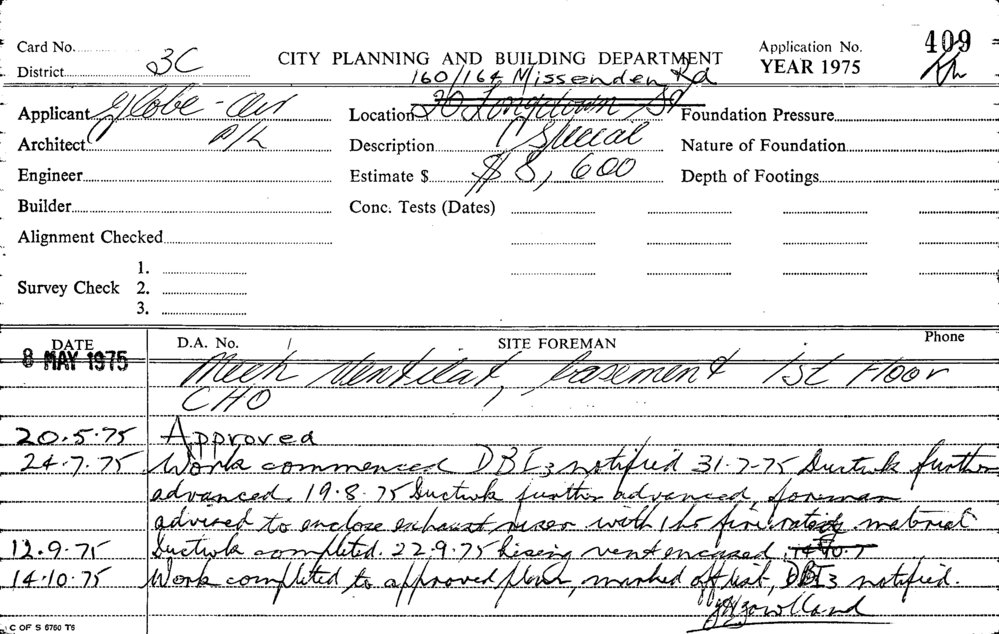 Card No.
District 3C
CITY PLANNING AND BUILDING DEPARTMENT
Application No. 409
YEAR 1975
Applicant Globe-Air
Architect P/L
Engineer
Builder
Alignment Checked
Survey Check 1.
2.
3.
160/164 Missenden Rd
Location 20 Longdown St
Description Special
Estimate $ $8,600
Conc. Tests (Dates)
Foundation Pressure
Nature of Foundation
Depth of Footings
DATE D.A. No. SITE FOREMAN Phone
8 MAY 1975 Mech Ventilat, basement 1st Floor
CHO
20.5.75 Approved
24.7.75 Work commenced DBI3 notified 31-7-75 Ductwk further
advanced. 19.8.75 Ductwk further advanced, foreman
advised to enclose exhaust riser with 1 hr fire rated material
12.9.75 Ductwk completed. 22.9.75 Rising vent encased.
14.10.75 Work completed to approved plan, marked off list, DBI3 notified.
C OF S 5760 T6